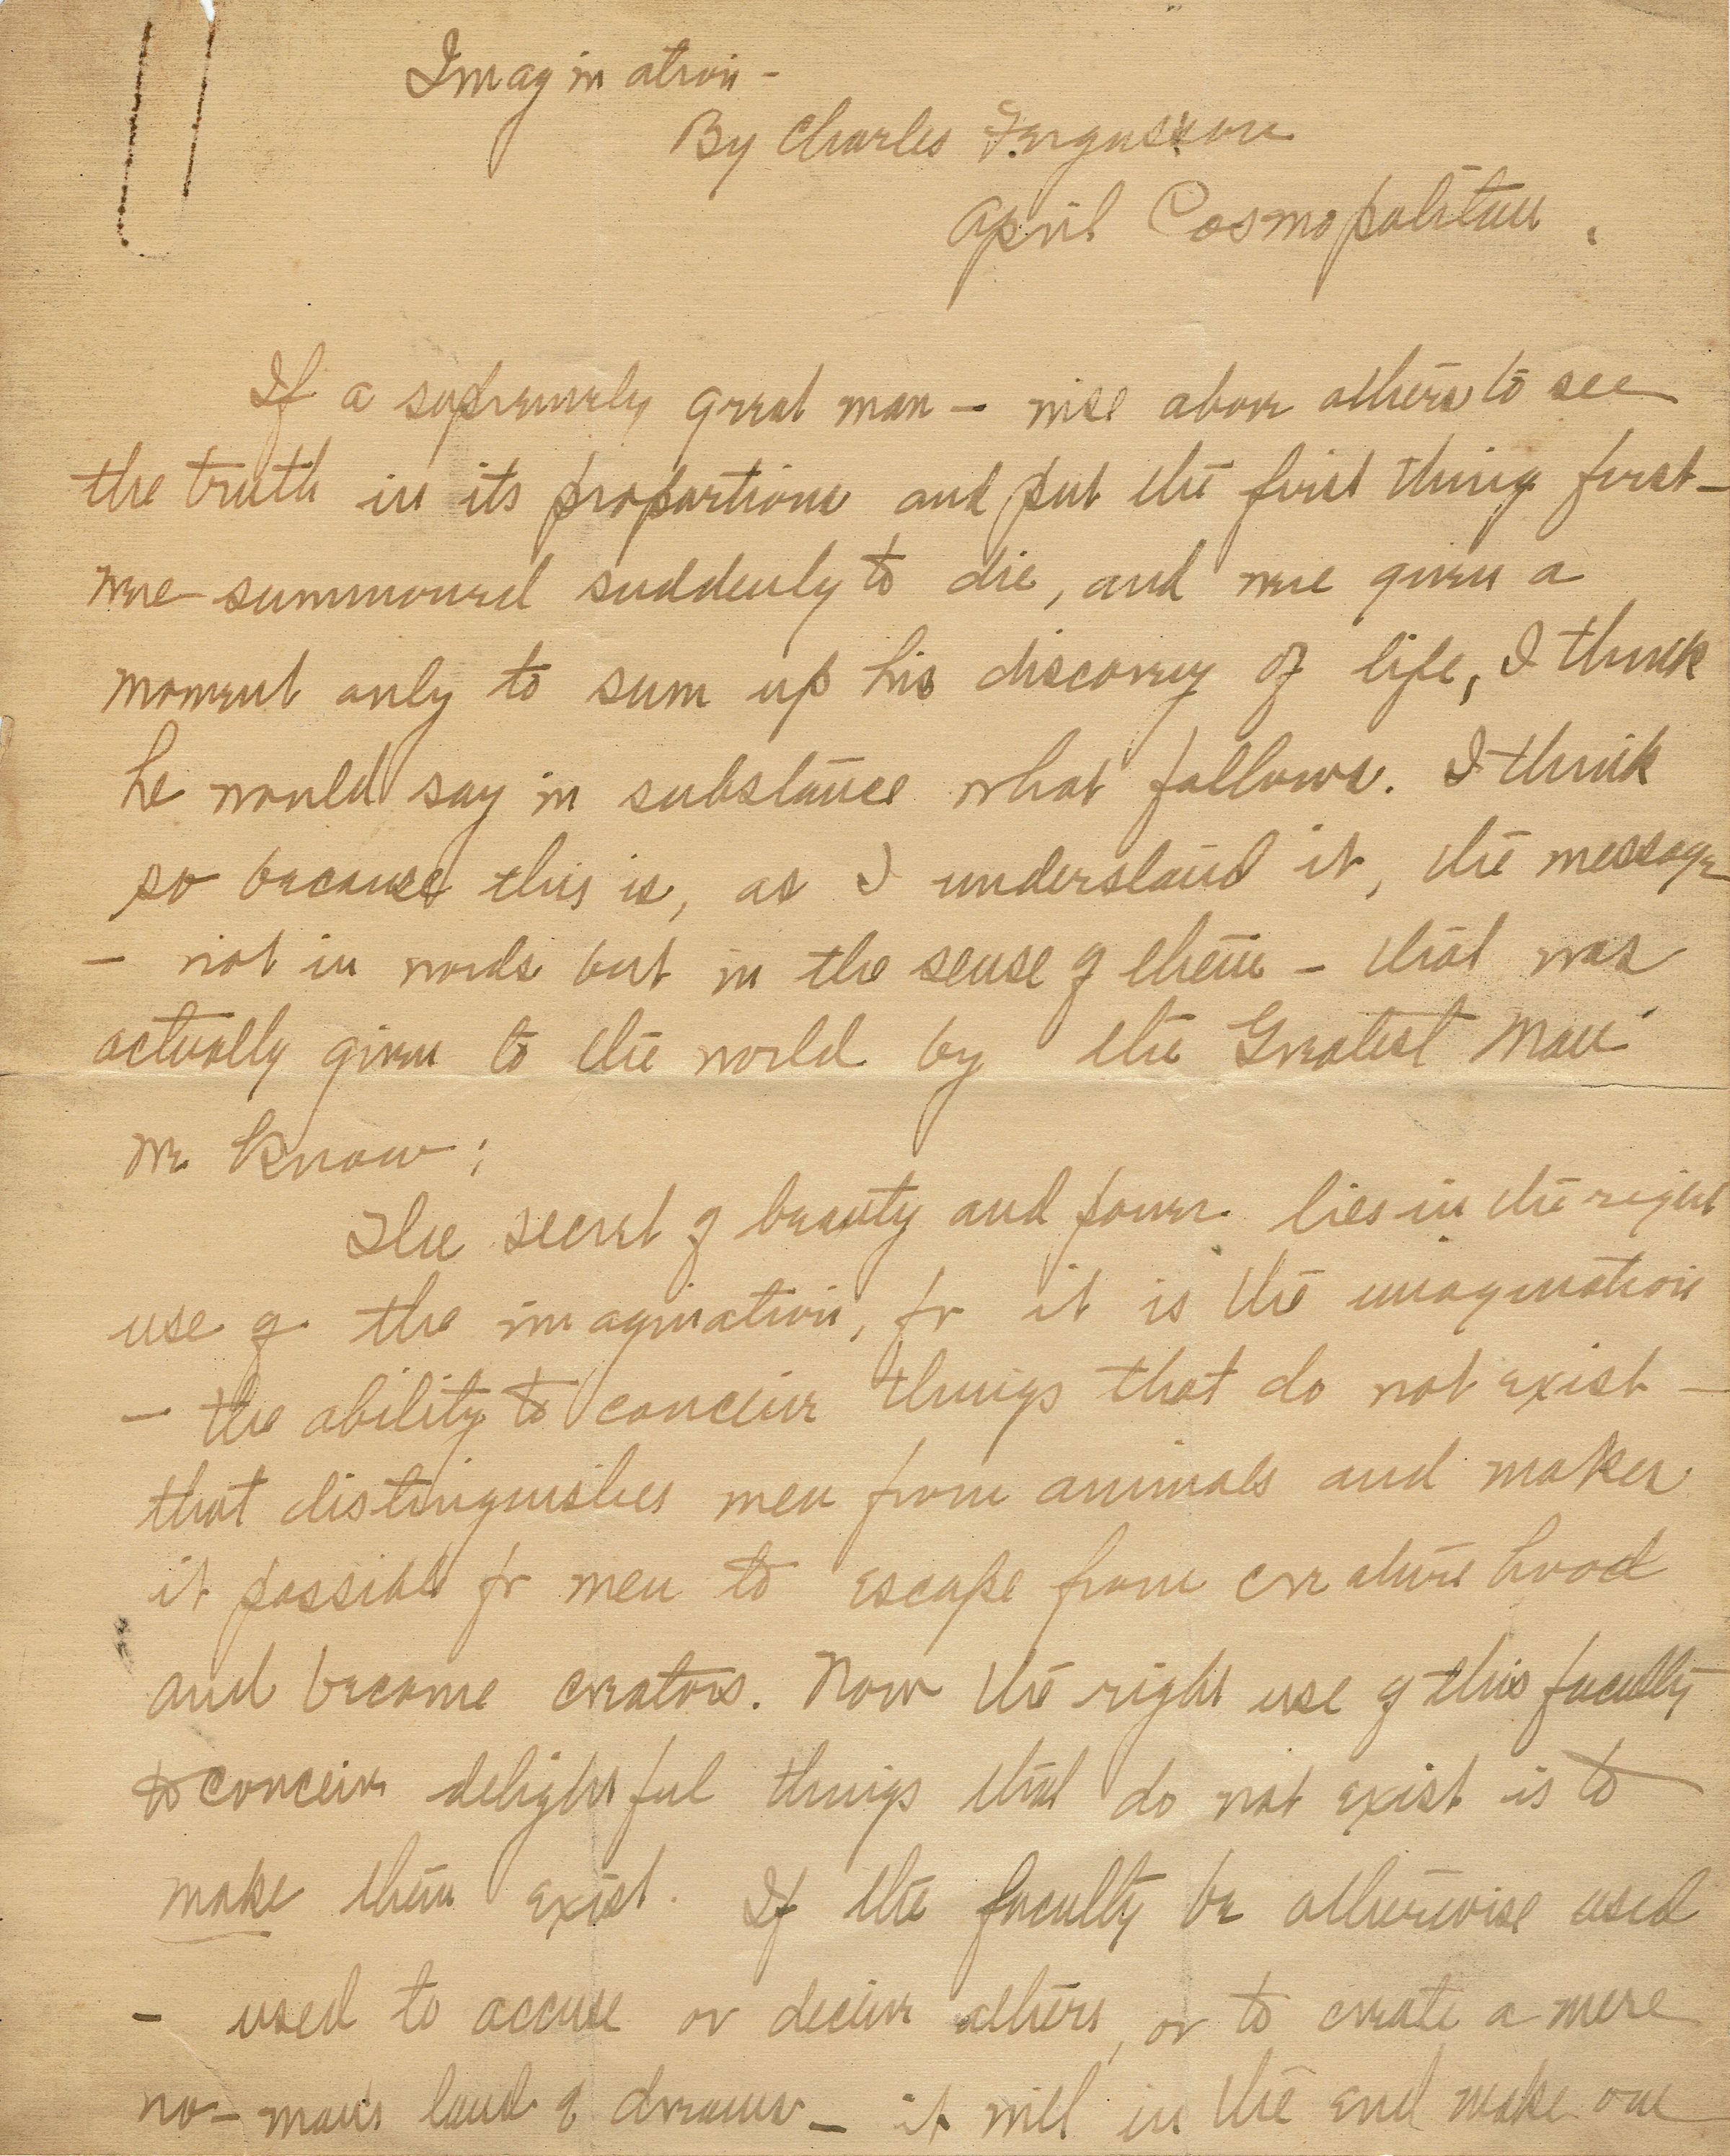 Imagination -
By Charles Fergusson
April Cosmopolitan.
If a supremely great man - rise above others to see
the truth in its proportions and put the first thing first -
were summoned suddenly to die, and were given a
moment only to sum up his discovery of life, I think
he would say in substance what follows. I think
so because this is, as I understand it, the message
- not in words but in the sense of them - that was
actually given to the world by the Greatest Man
we know:
The secret of beauty and power lies in the right
use of the imagination, for it is the imagination
- the ability to conceive things that do not exist -
that distinguishes men from animals and makes
it possible for men to escape from creaturehood
and become creators. Now the right use of this faculty
to conceive delightful things that do not exist is to
make them exist. If the faculty be otherwise used
- used to accuse or deceive others, or to create a mere
no-man's land of dreams - it will in the end make one